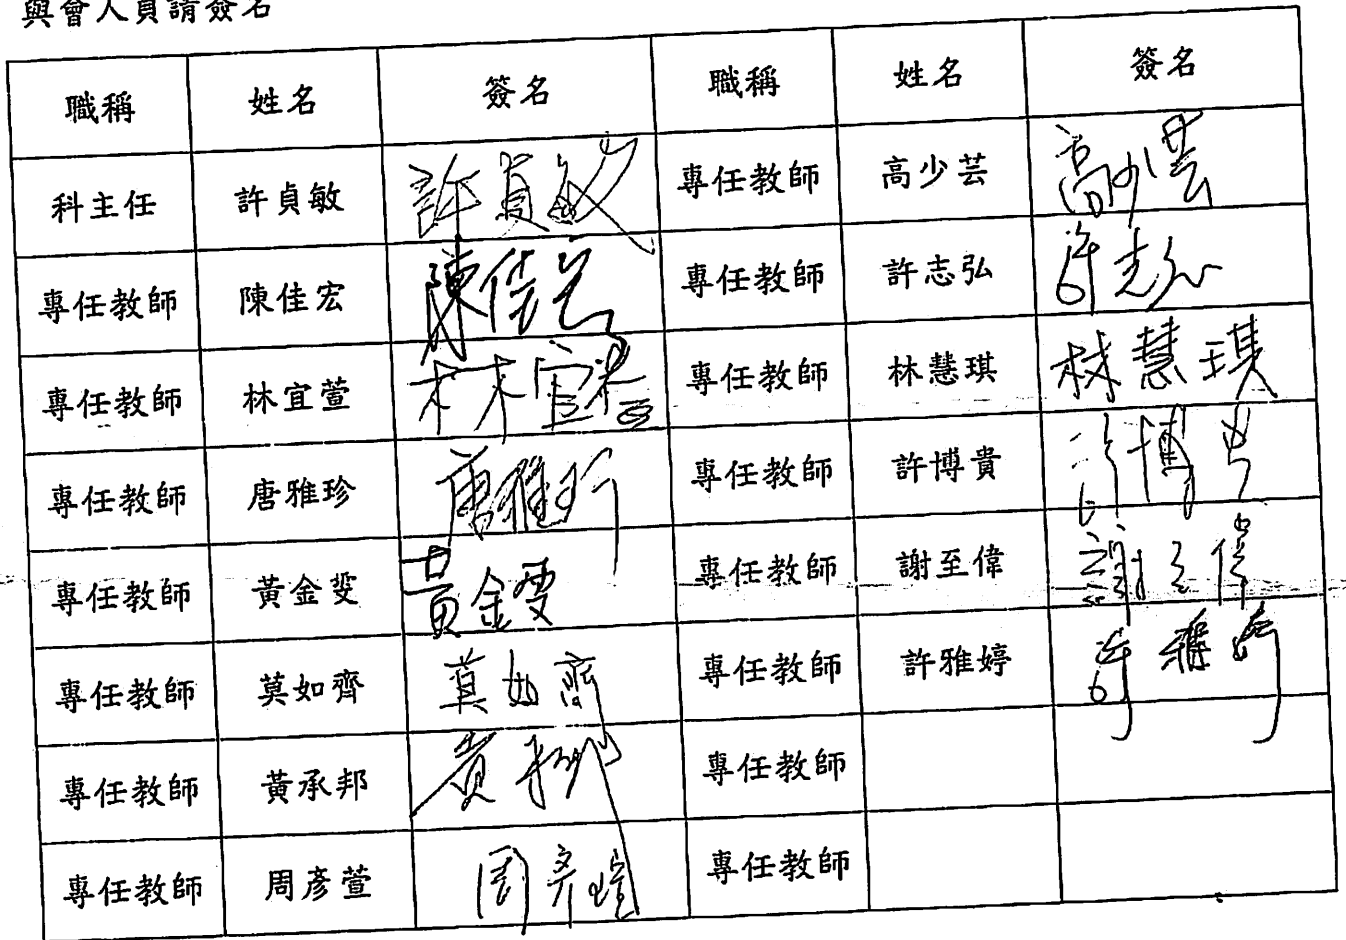 與會人員請簽名
職稱 姓名 簽名 職稱 姓名 簽名
科主任 許貞敏 許貞敏 專任教師 高少芸 高少芸
專任教師 陳佳宏 陳佳宏 專任教師 許志弘 許志弘
專任教師 林宜萱 林宜萱 專任教師 林慧琪 林慧琪
專任教師 唐雅珍 唐雅珍 專任教師 許博貴 許博貴
專任教師 黃金斐 黃金雯 專任教師 謝至偉 謝至偉
專任教師 莫如齊 莫如齊 專任教師 許雅婷 許雅婷
專任教師 黃承邦 黃承邦 專任教師
專任教師 周彥萱 周彥萱 專任教師